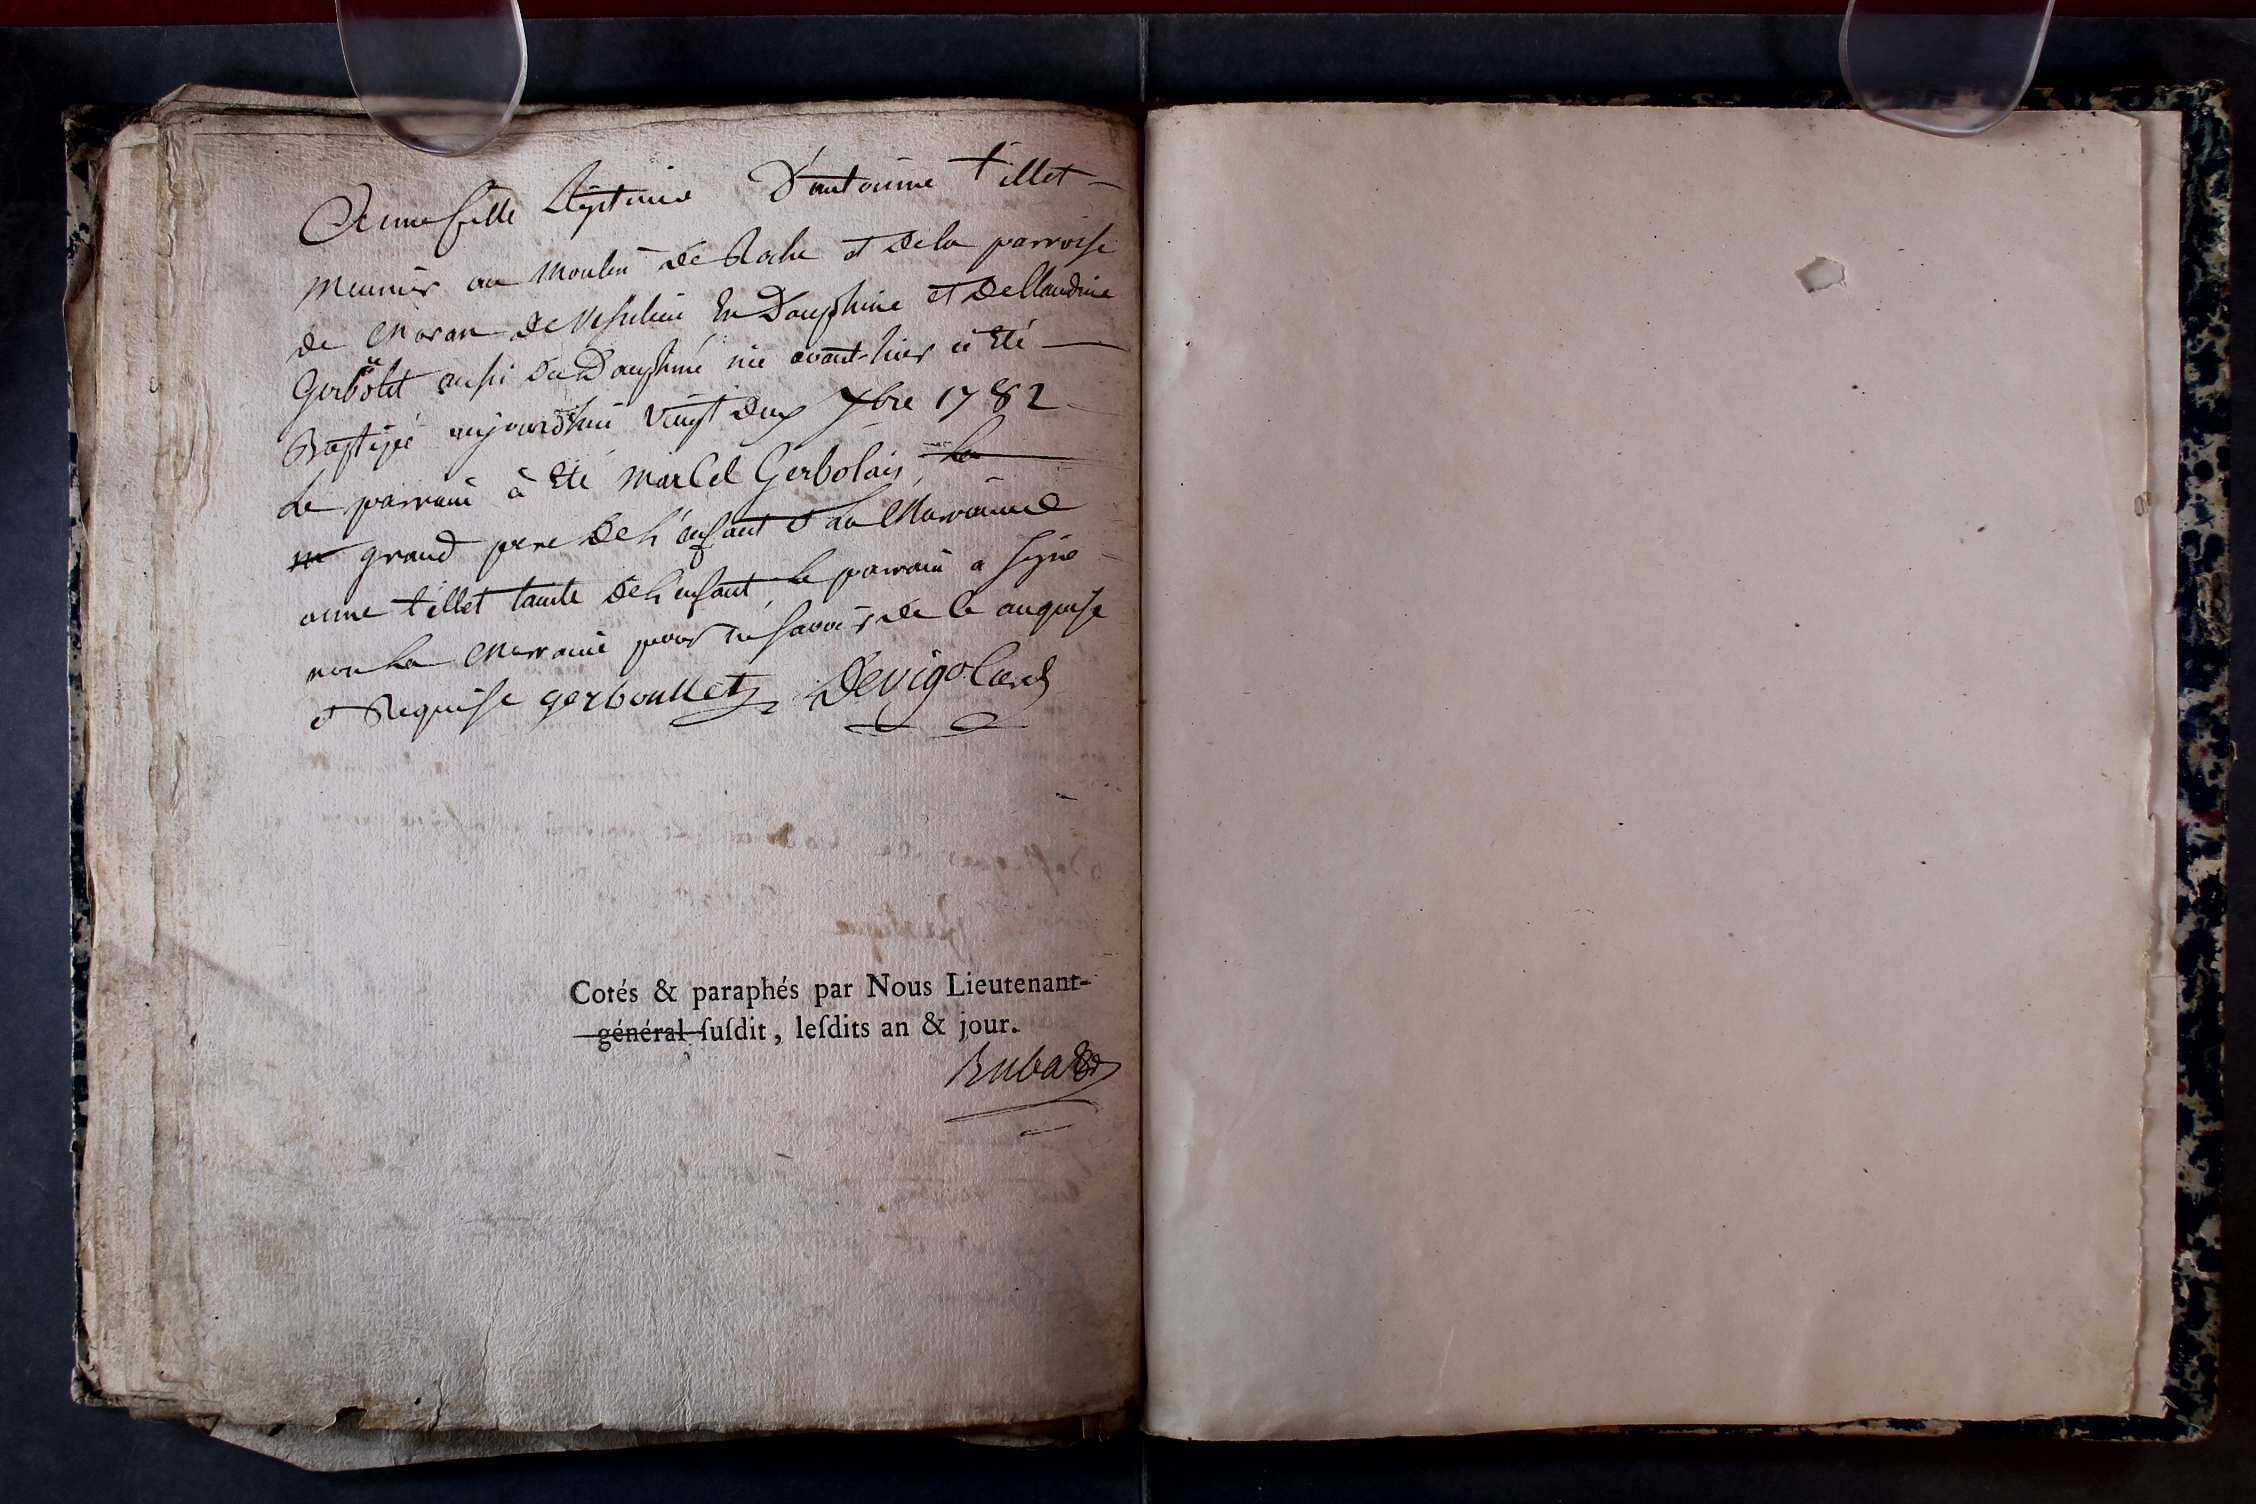 Anne fille légitime d'antoine tillet
meunier au moulin de Roche et de la parroisse
de Moran de Vesulieu En Dauphine et de Claudine
Gerbolet aussi du Dauphiné née avant-hier à Eté
Baptisée aujourdhui vingt deux Xbre 1782
Le parrain à Eté marcel Gerbolais La
m grand pere de l'enfant et La Marrainne
anne tillet tante de l'enfant, le parrain a signé
non La Marraine pour ne savoir de ce enquise
et Requise gerboullet Devigolard
Cotés & paraphés par Nous Lieutenant-
général ſuſdit, leſdits an & jour.
Rubard